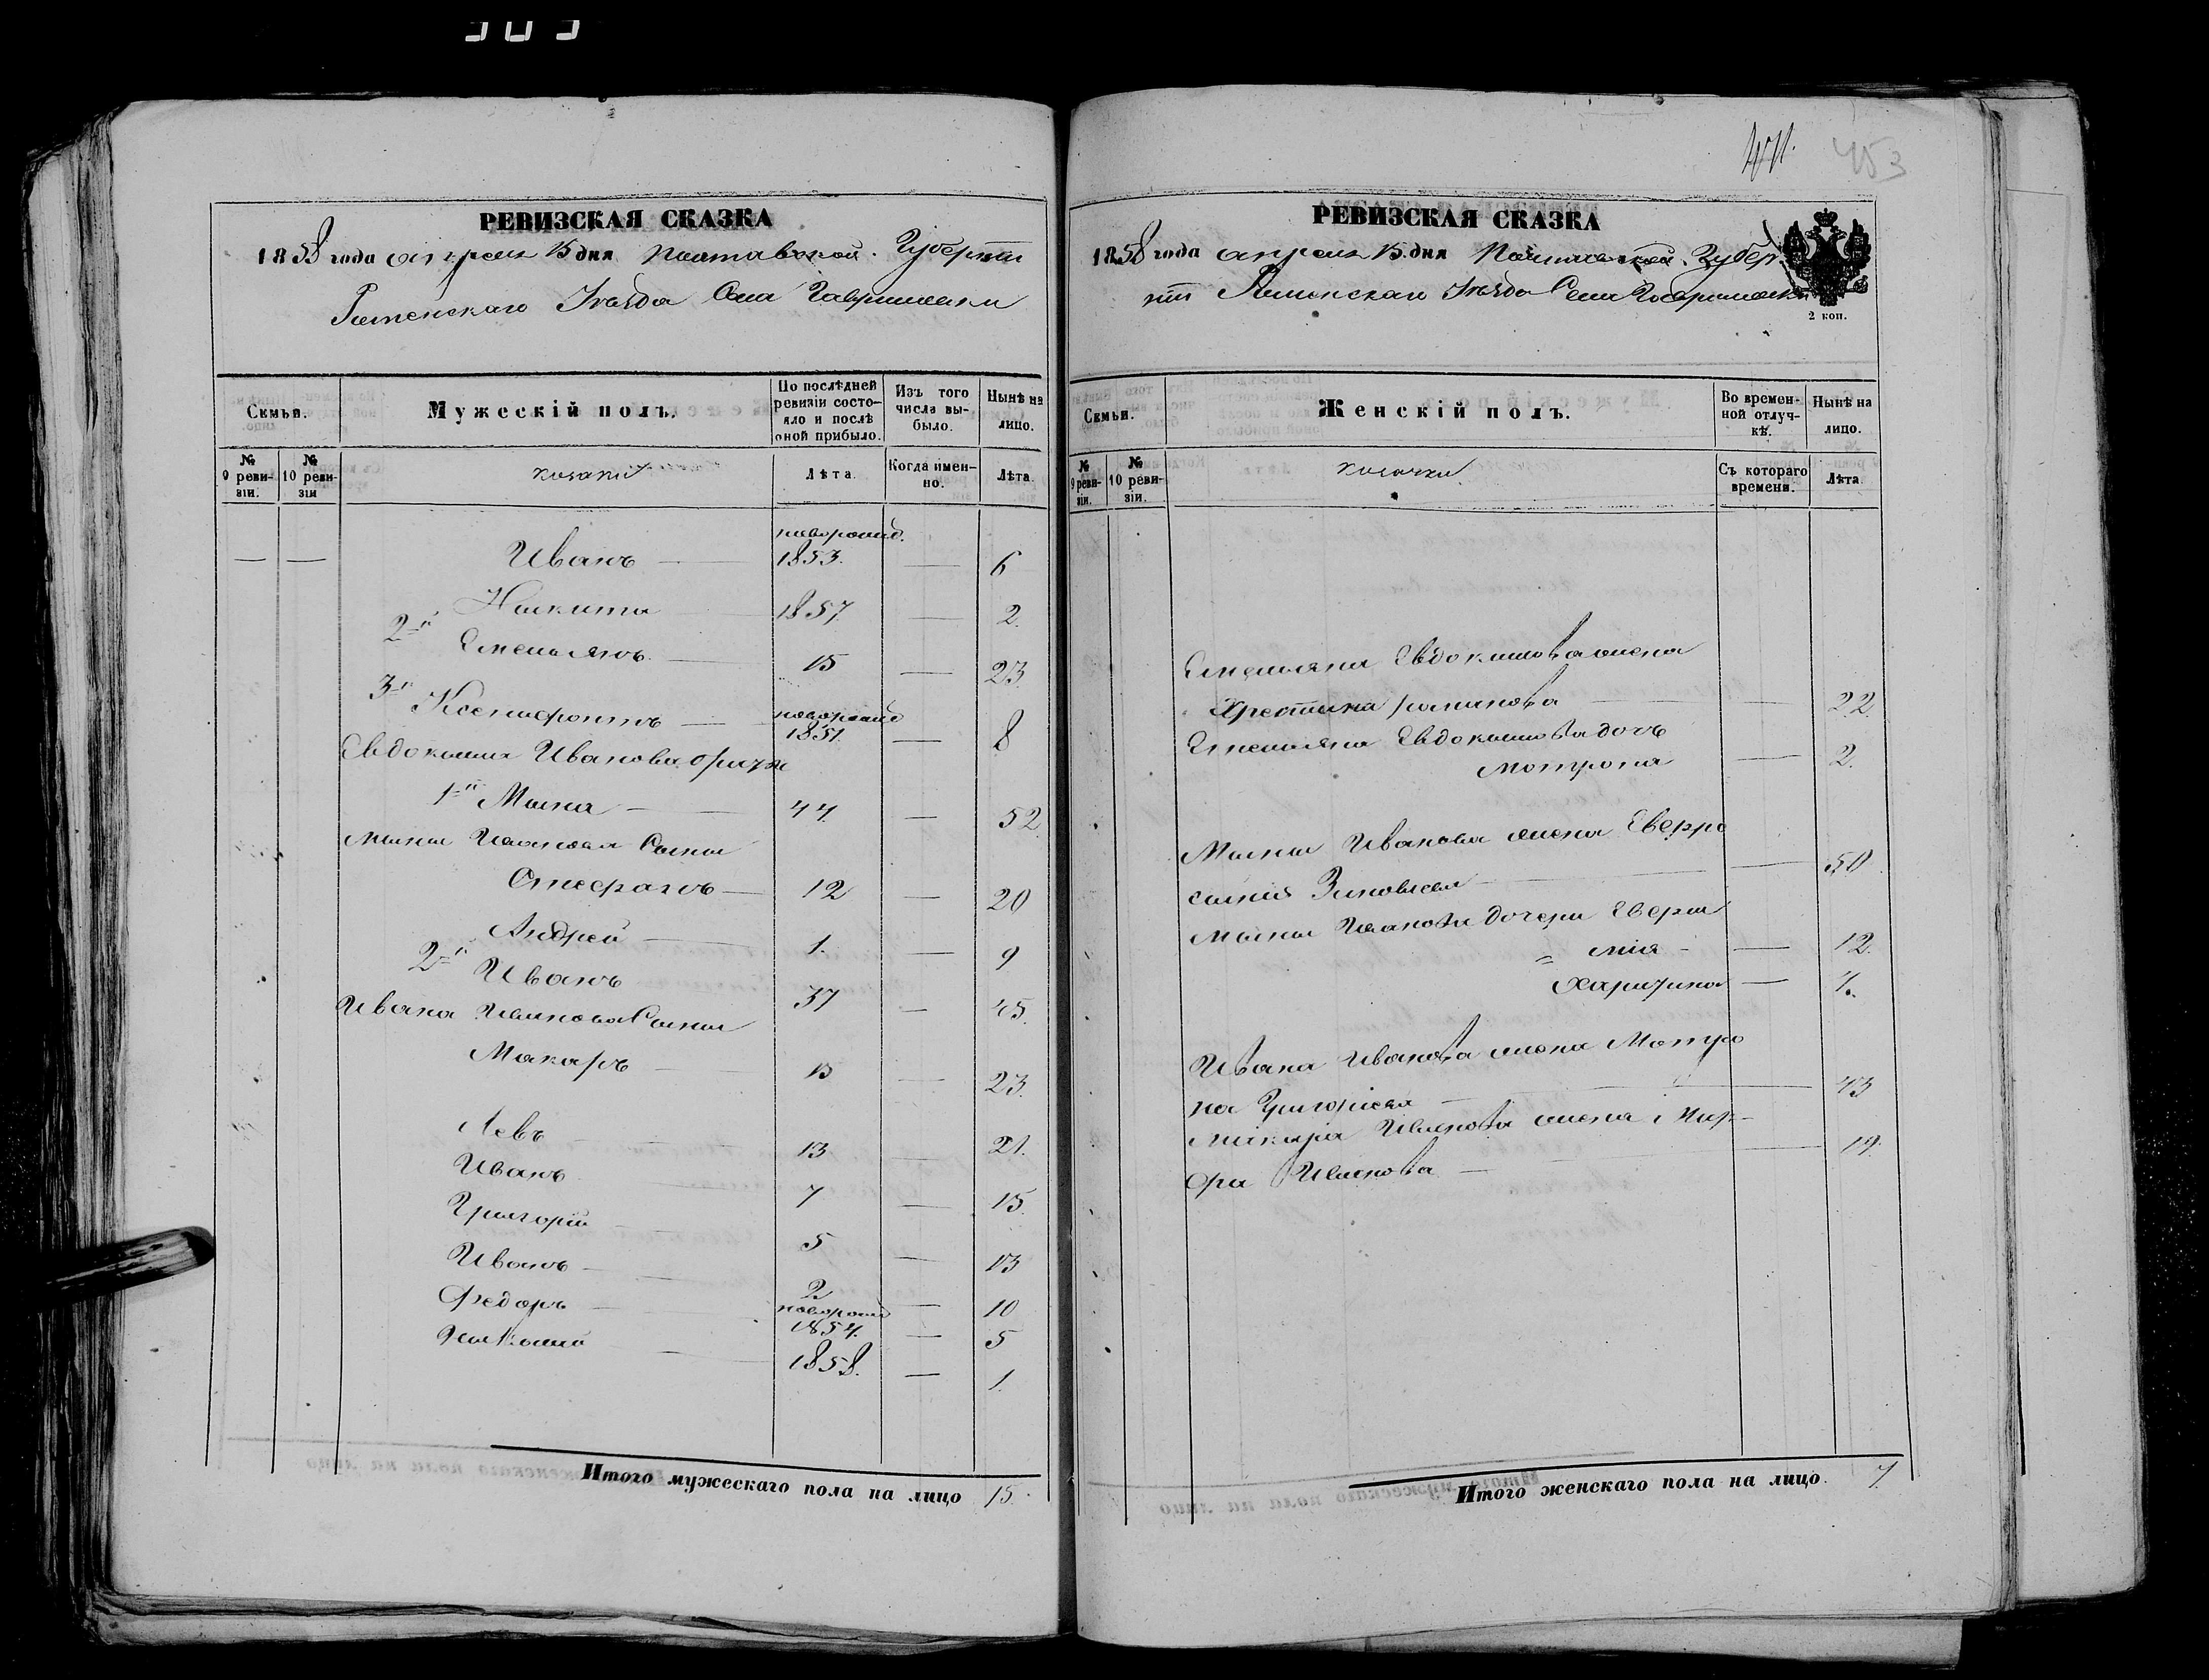 471.
453
РЕВИЗСКАЯ СКАЗКА
1858 года апреля 15 дня Полтавской Губерніи
Роменскаго Уезда Села Гавришовки
Семьи.
Мужескій полъ.
По послѣдней ревизіи состояло и послѣ оной прибыло.
Изъ того числа выбыло.
Нынѣ на лицо.
№ 9 ревизіи.
№ 10 ревизіи
козаки
Лѣта.
Когда именно.
Лѣта.
новорожд.
Иванъ — 1853. — 6
Никита 1857 — 2.
2-й
Емельянъ — 15 — 23.
3-й Ксенофонтъ — новорожд 1851. — 8
Евдокима Иванова братья
1-й Мина — 44. — 52
Мины Иванова Сыны
Стефанъ — 12 — 20
Андрей — 1. — 9
2-й Иванъ 37 — 45.
Ивана Иванова Сыны
Макаръ — 15 — 23.
Левъ 13 — 21.
Иванъ 7 — 15.
Григорій 5 — 13
Иванъ — 2 — 10
Федоръ — новорожд 1854. — 5
1858. — 1.
Итого мужескаго пола на лицо 15.
РЕВИЗСКАЯ СКАЗКА
1858 года апреля 15 дня Полтавской Губер
ніи Роменскаго Уезда Села Гавришовки
2 коп.
Семьи.
Женскій полъ.
Во временной отлучкѣ.
Нынѣ на лицо.
№ 9 ревизіи.
№ 10 ревизіи.
козачки
Съ котораго времени.
Лѣта.
Емельяна Евдокимова жена
Хрестина Романова — 22
Емельяна Евдокимова дочь
Мотрона — 2.
Мины Иванова жена Евфро
синія Зиновьева — 50
Мины Иванова дочери Евфи
мія — 12.
Харитина —
Ивана Иванова жена Мотро
на Григоріева — 43
Макара Иванова жена Мар-
фа Иванова — 19.
Итого женскаго пола на лицо. 7.